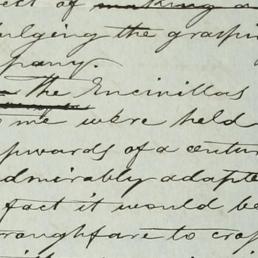 ect of making a
dulging the graspin
pany.
The Encinillas
me were held
upwards of a centur
admirably adapte
fact it would be
oroughfare to crop